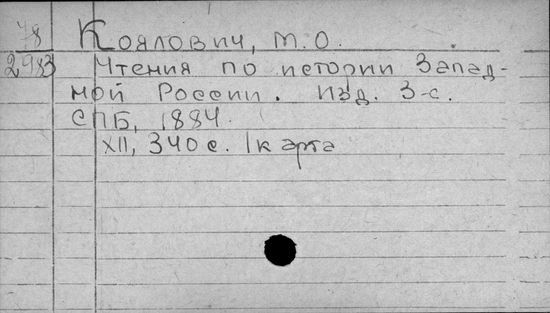 78 Коялович, М.О.
2983 Чтения по истории Запад-
ной России. Изд. 3-е.
СПБ, 1884.
XII, 340 с. 1 карта